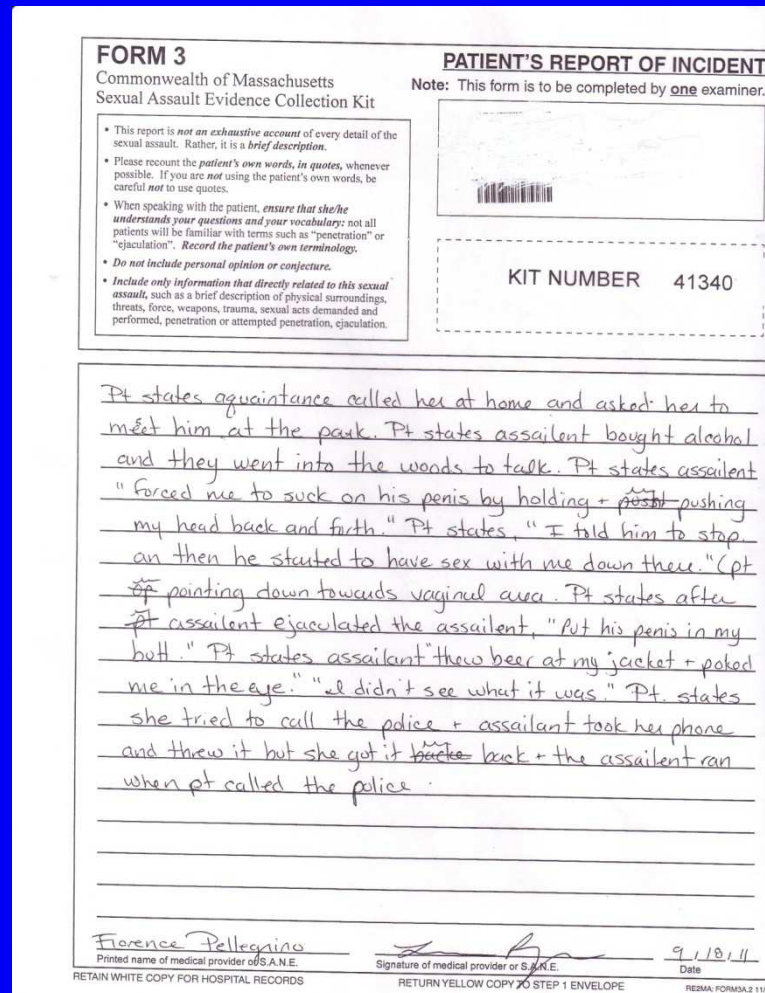 FORM 3
Commonwealth of Massachusetts
Sexual Assault Evidence Collection Kit
PATIENT'S REPORT OF INCIDENT
Note: This form is to be completed by one examiner.
• This report is not an exhaustive account of every detail of the
sexual assault. Rather, it is a brief description.
• Please recount the patient's own words, in quotes, whenever
possible. If you are not using the patient's own words, be
careful not to use quotes.
• When speaking with the patient, ensure that she/he
understands your questions and your vocabulary: not all
patients will be familiar with terms such as "penetration" or
"ejaculation". Record the patient's own terminology.
• Do not include personal opinion or conjecture.
• Include only information that directly related to this sexual
assault, such as a brief description of physical surroundings,
threats, force, weapons, trauma, sexual acts demanded and
performed, penetration or attempted penetration, ejaculation.
KIT NUMBER 41340
Pt states aquaintance called her at home and asked her to
meet him at the park. Pt states assailent bought alcohol
and they went into the woods to talk. Pt states assailent
"forced me to suck on his penis by holding + pushing
my head back and forth." Pt states, "I told him to stop.
an then he started to have sex with me down there." (pt
pointing down towards vaginal area. Pt states after
pt assailent ejaculated the assailent, "Put his penis in my
butt." Pt states assailant "thew beer at my jacket + poked
me in the eye." "I didn't see what it was." Pt. states
she tried to call the police + assailant took her phone
and threw it but she got it back + the assailent ran
when pt called the police.
Florence Pellegrino
Printed name of medical provider or S.A.N.E.
Signature of medical provider or S.A.N.E.
9/18/11
Date
RETAIN WHITE COPY FOR HOSPITAL RECORDS
RETURN YELLOW COPY TO STEP 1 ENVELOPE
RE2MA: FORM3A.2 11/